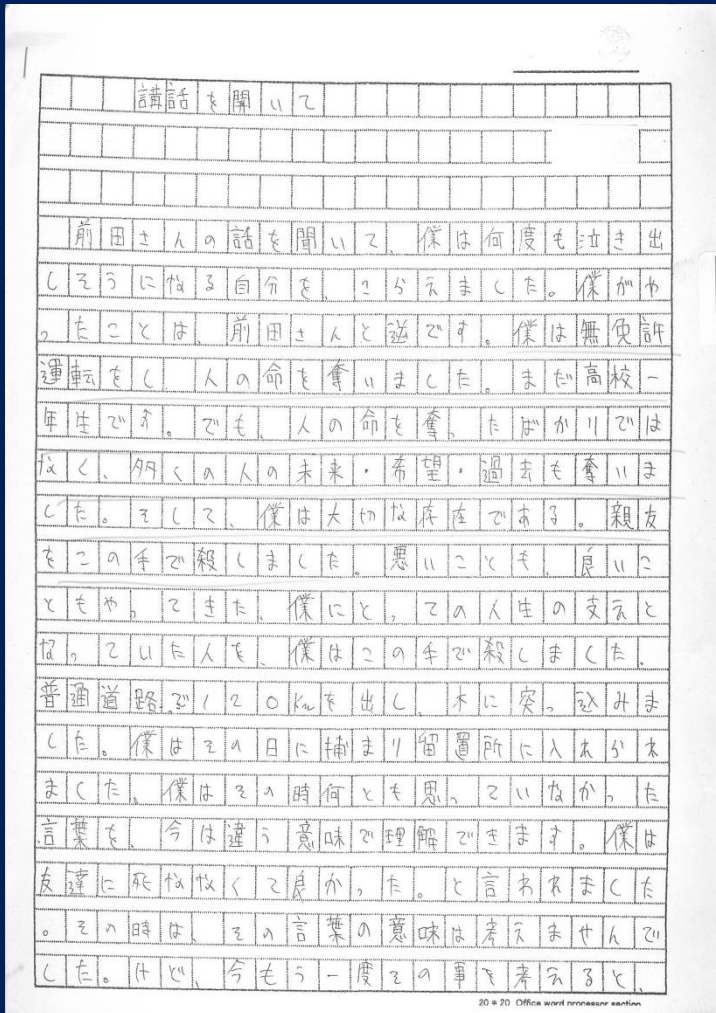 講話を聞いて
前田さんの話を聞いて、僕は何度も泣き出
しそうになる自分を、こらえました。僕がや
ったことは、前田さんと逆です。僕は無免許
運転をし、人の命を奪いました。まだ高校一
年生です。でも、人の命を奪ったばかりでは
なく、多くの人の未来・希望・過去も奪いま
した。そして、僕は大切な存在である。親友
をこの手で殺しました。悪いことも、良いこ
ともやってきた、僕にとっての人生の支えと
なっていた人を、僕はこの手で殺しました。
普通道路で120kmを出し、木に突っ込みま
した。僕はその日に捕まり留置所に入れられ
ました。僕はその時何とも思っていなかった
言葉を、今は違う意味で理解できます。僕は
友達に死ななくて良かった。と言われました
。その時は、その言葉の意味は考えませんで
した。けど、今もう一度その事を考えると、
20＊20 Office word processor section